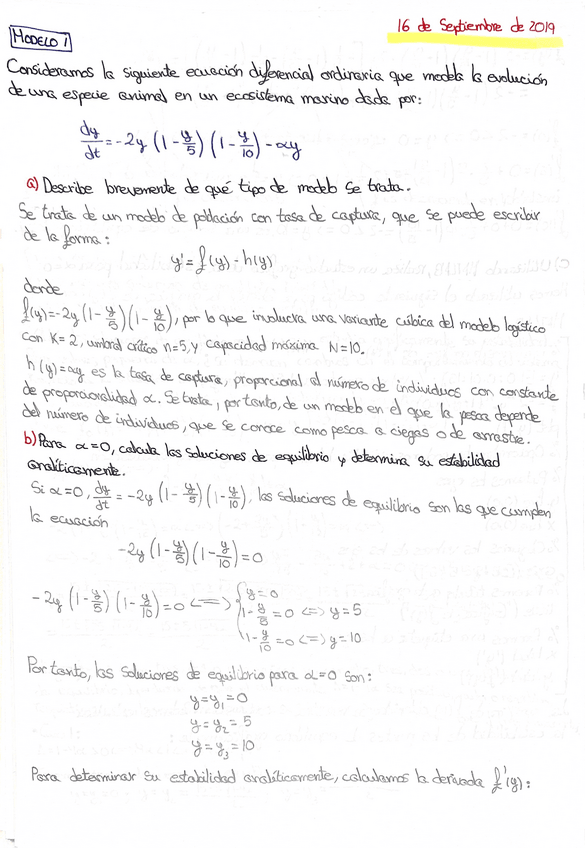 16 de Septiembre de 2019
MODELO 1
Consideramos la siguiente ecuación diferencial ordinaria que modela la evolución
de una especie animal en un ecosistema marino dada por:
dy/dt = -2y (1 - y/5) (1 - y/10) - αy
a) Describe brevemente de qué tipo de modelo se trata.
Se trata de un modelo de población con tasa de captura, que se puede escribir
de la forma:
y' = f(y) - h(y)
donde
f(y) = -2y (1 - y/5) (1 - y/10), por lo que involucra una variante cúbica del modelo logístico
con K=2, umbral crítico n=5, y capacidad máxima N=10.
h(y) = αy es la tasa de captura, proporcional al número de individuos con constante
de proporcionalidad α. Se trata, por tanto, de un modelo en el que la pesca depende
del número de individuos, que se conoce como pesca a ciegas o de arrastre.
b) Para α=0, calcula las soluciones de equilibrio y determina su estabilidad
analíticamente.
Si α=0, dy/dt = -2y (1 - y/5) (1 - y/10), las soluciones de equilibrio son las que cumplen
la ecuación
-2y (1 - y/5) (1 - y/10) = 0
-2y (1 - y/5) (1 - y/10) = 0 <=> { y = 0
1 - y/5 = 0 <=> y = 5
1 - y/10 = 0 <=> y = 10
Por tanto, las soluciones de equilibrio para α=0 son:
y = y₁ = 0
y = y₂ = 5
y = y₃ = 10
Para determinar su estabilidad analíticamente, calculamos la derivada f'(y):